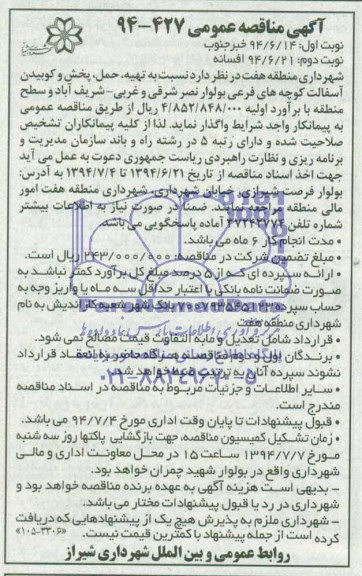 آگهی مناقصه عمومی ۴۲۷-۹۴
نوبت اول: ۹۴/۶/۱۴ خبرجنوب
نوبت دوم: ۹۴/۶/۲۱ افسانه
شهرداری منطقه هفت در نظر دارد نسبت به تهیه، حمل، پخش و کوبیدن
آسفالت کوچه های فرعی بولوار نصر شرقی و غربی- شریف آباد و سطح
منطقه با برآورد اولیه ۴/۸۵۲/۸۴۸/۰۰۰ ریال از طریق مناقصه عمومی
به پیمانکار واجد شرایط واگذار نماید. لذا از کلیه پیمانکاران تشخیص
صلاحیت شده و دارای رتبه ۵ در رشته راه و باند سازمان مدیریت و
برنامه ریزی و نظارت راهبردی ریاست جمهوری دعوت به عمل می آید
جهت اخذ اسناد مناقصه از تاریخ ۱۳۹۴/۶/۲۱ تا ۱۳۹۴/۷/۴ به آدرس:
بولوار فرصت شیرازی، خیابان شهرداری، شهرداری منطقه هفت امور
مالی منطقه مراجعه نمایند. ضمنا در صورت نیاز به اطلاعات بیشتر
شماره تلفن آماده پاسخگویی می باشد.
• مدت انجام کار ۶ ماه می باشد.
• مبلغ تضمین شرکت در مناقصه: ۲۴۳/۰۰۰/۰۰۰ ریال است.
• ارائه سپرده ای که از ۵ درصد مبلغ کل برآورد کمتر نباشد به
صورت ضمانت نامه بانکی با اعتبار حداقل سه ماه یا واریز وجه به
حساب سپرده بانک شهر شعبه کاراندیش به نام
شهرداری منطقه هفت
• قرارداد شامل تعدیل و مابه التفاوت قیمت مصالح نمی شود.
• برندگان اول و دوم مناقصه هرگاه حاضر به انعقاد قرارداد
نشوند سپرده آنان به ترتیب ضبط خواهد شد.
• سایر اطلاعات و جزئیات مربوط به مناقصه در اسناد مناقصه
مندرج است.
• قبول پیشنهادات تا پایان وقت اداری مورخ ۹۴/۷/۴ می باشد.
• زمان تشکیل کمیسیون مناقصه، جهت بازگشایی پاکتها روز سه شنبه
مورخ ۱۳۹۴/۷/۷ ساعت ۱۵ در محل معاونت اداری و مالی
شهرداری واقع در بولوار شهید چمران خواهد بود.
- بدیهی است هزینه آگهی به عهده برنده مناقصه خواهد بود و
شهرداری در رد یا قبول پیشنهادات مختار می باشد.
- شهرداری ملزم به پذیرش هیچ یک از پیشنهادهایی که دریافت
کرده است از جمله پیشنهاد با کمترین قیمت نیست. «۱۰۵-۳۳۰۶»
روابط عمومی و بین الملل شهرداری شیراز